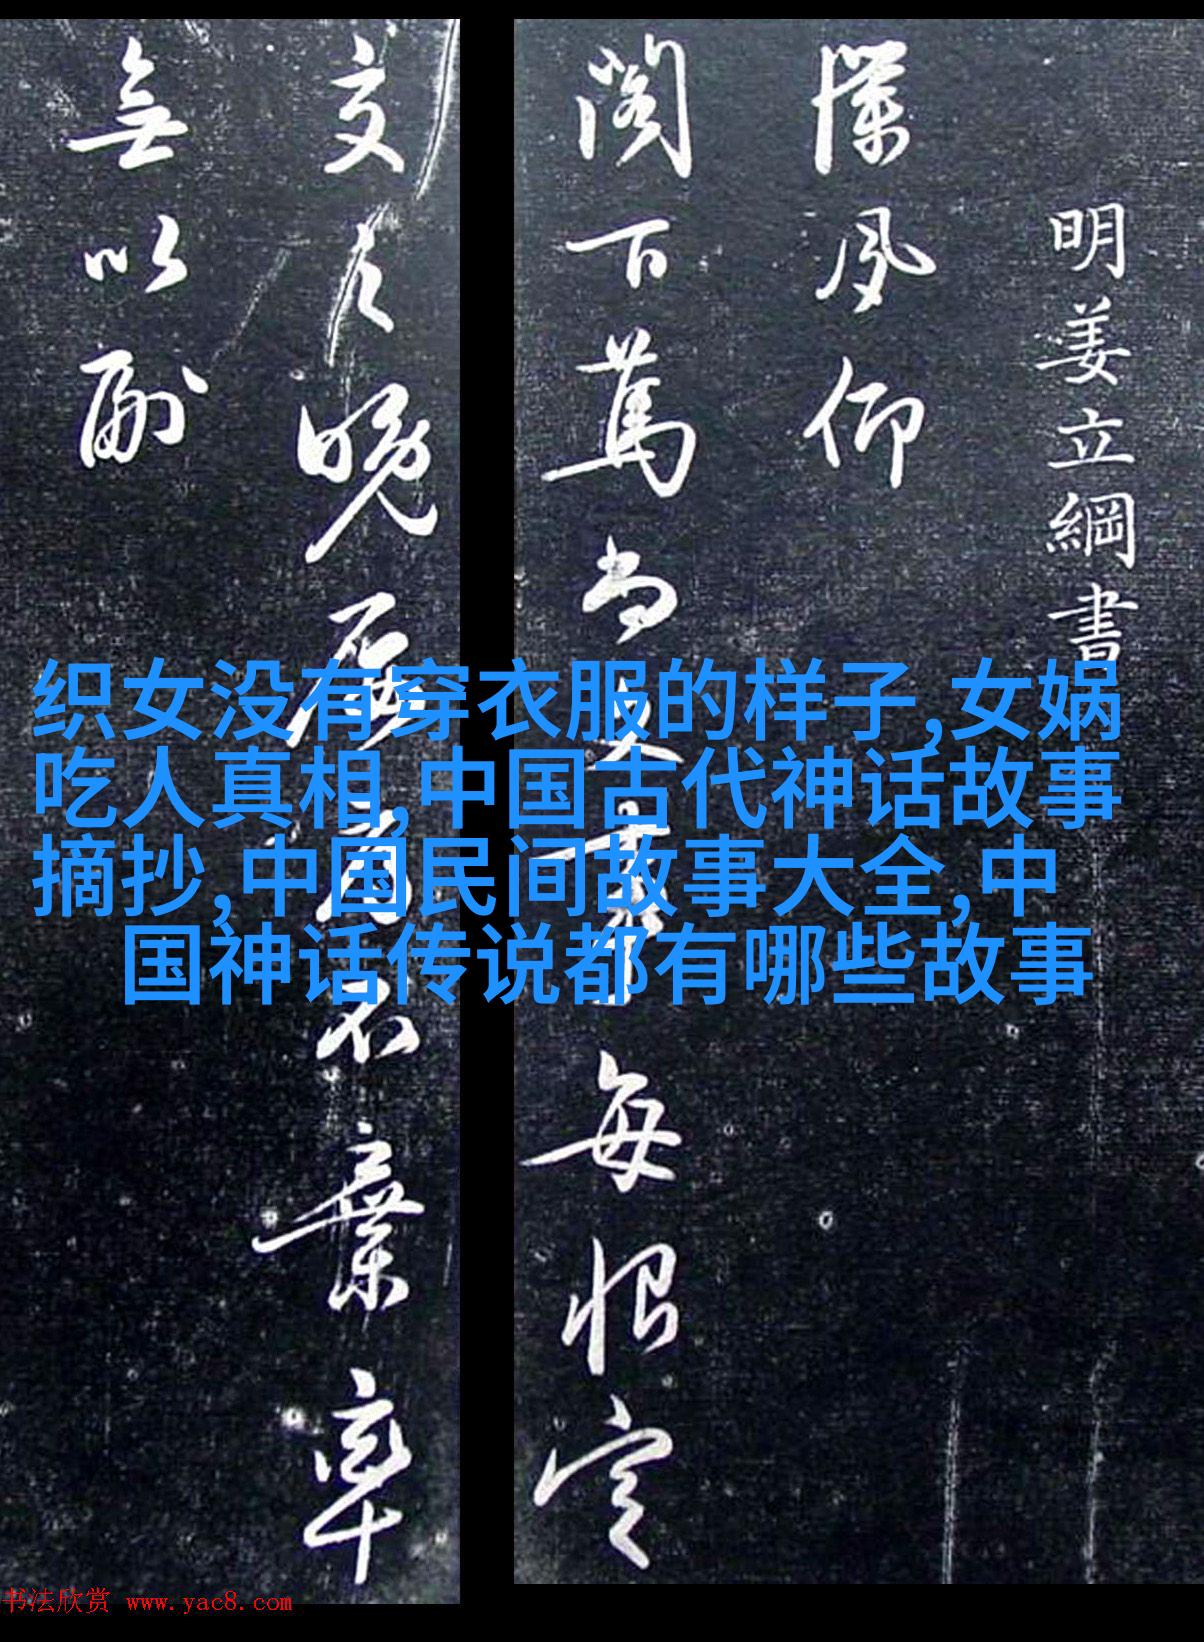 明姜立綱書
仰
閣百萬尚
每恨定
交
晚
棄率
無以副
织女没有穿衣服的样子,女娲
吃人真相,中国古代神话故事
摘抄,中国民间故事大全,中
国神话传说都有哪些故事
书法欣赏 www.yac8.com